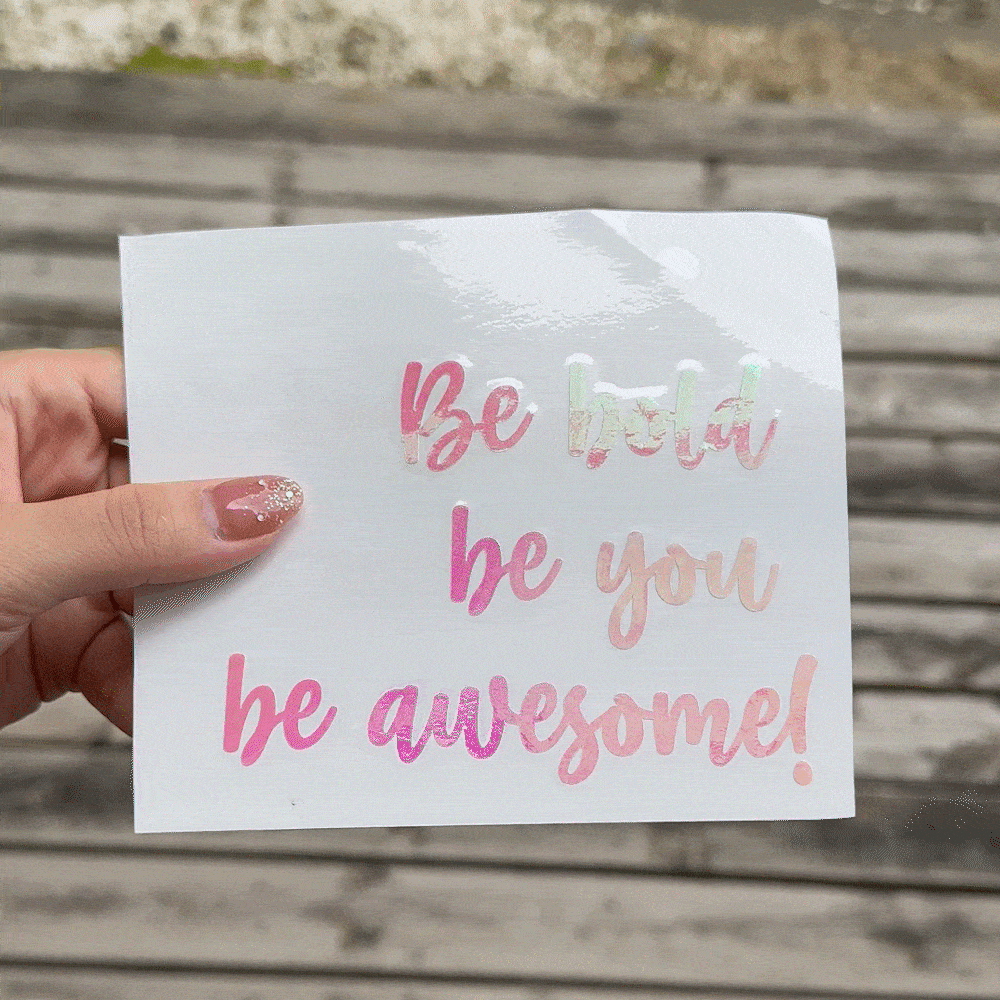 Be bold
be you
be awesome!